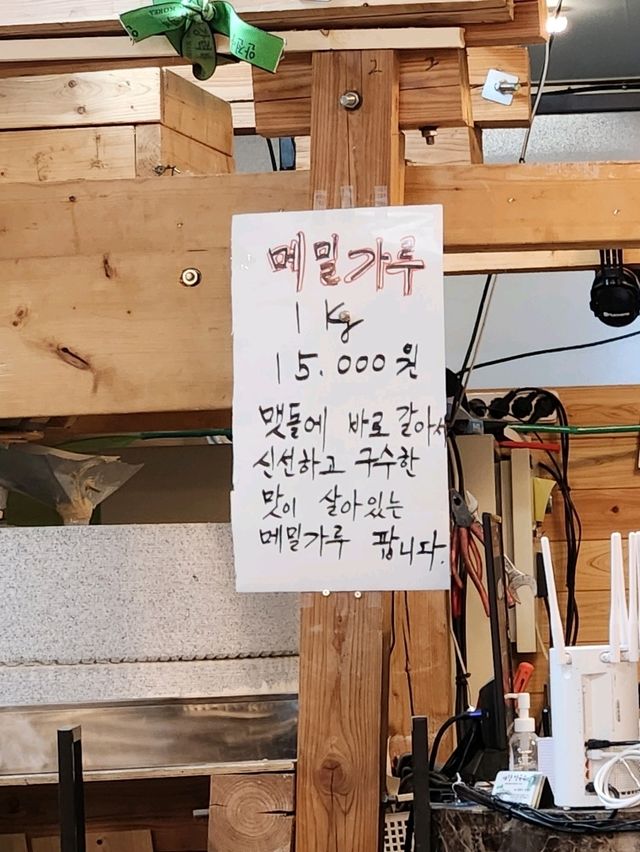 KOREA
메밀가루
1 Kg
15.000원
맷돌에 바로 갈아서
신선하고 구수한
맛이 살아있는
메밀가루 팝니다.